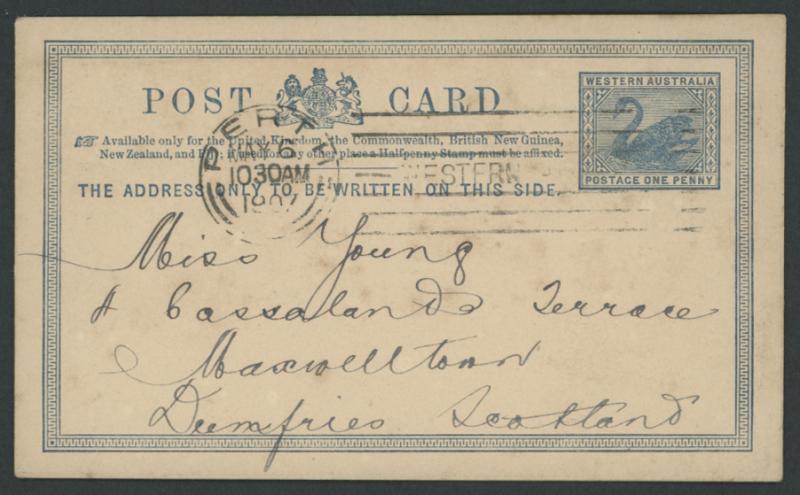 POST CARD
WESTERN AUSTRALIA
POSTAGE ONE PENNY
Available only for the United Kingdom, the Commonwealth, British New Guinea,
New Zealand, and Fiji; if used for any other place a Halfpenny Stamp must be affixed.
THE ADDRESS ONLY TO BE WRITTEN ON THIS SIDE.
PERTH
6
10 30AM
WESTERN
Miss Young
4 Cassalands Terrace
Maxwelltown
Dumfries Scotland